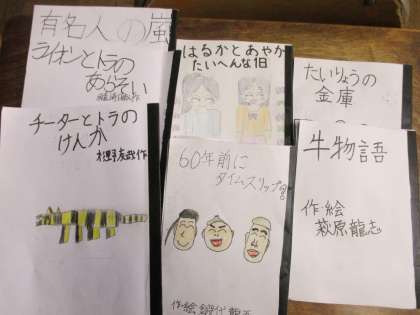 有名人の嵐
ライオンとトラの
あらそい
はるかとあやか
たいへんな1日
たいりょうの
金庫
チーターとトラの
けんか
作
60年前に
タイムスリップ
作・絵
牛物語
作・絵
萩原龍志